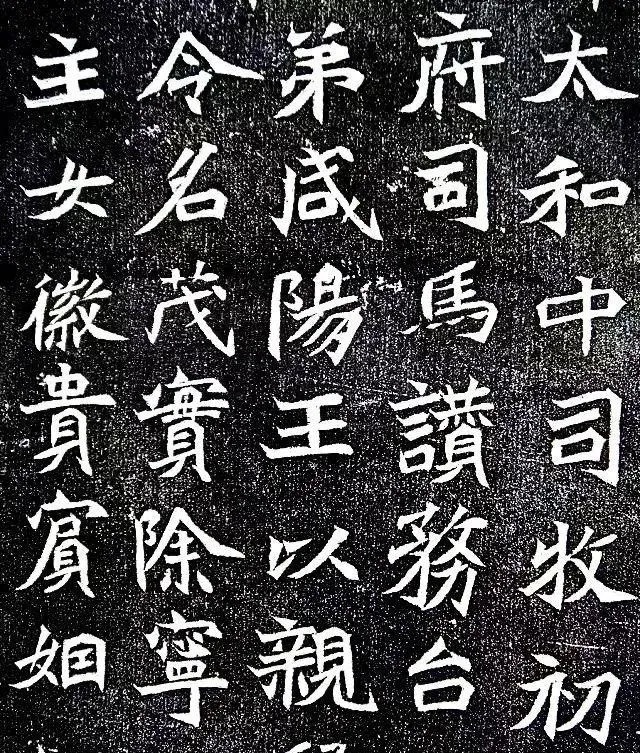 太和中司牧初
府司馬讃務台
弟咸陽王以親
令名茂實除寧
主女徽貴賔姻